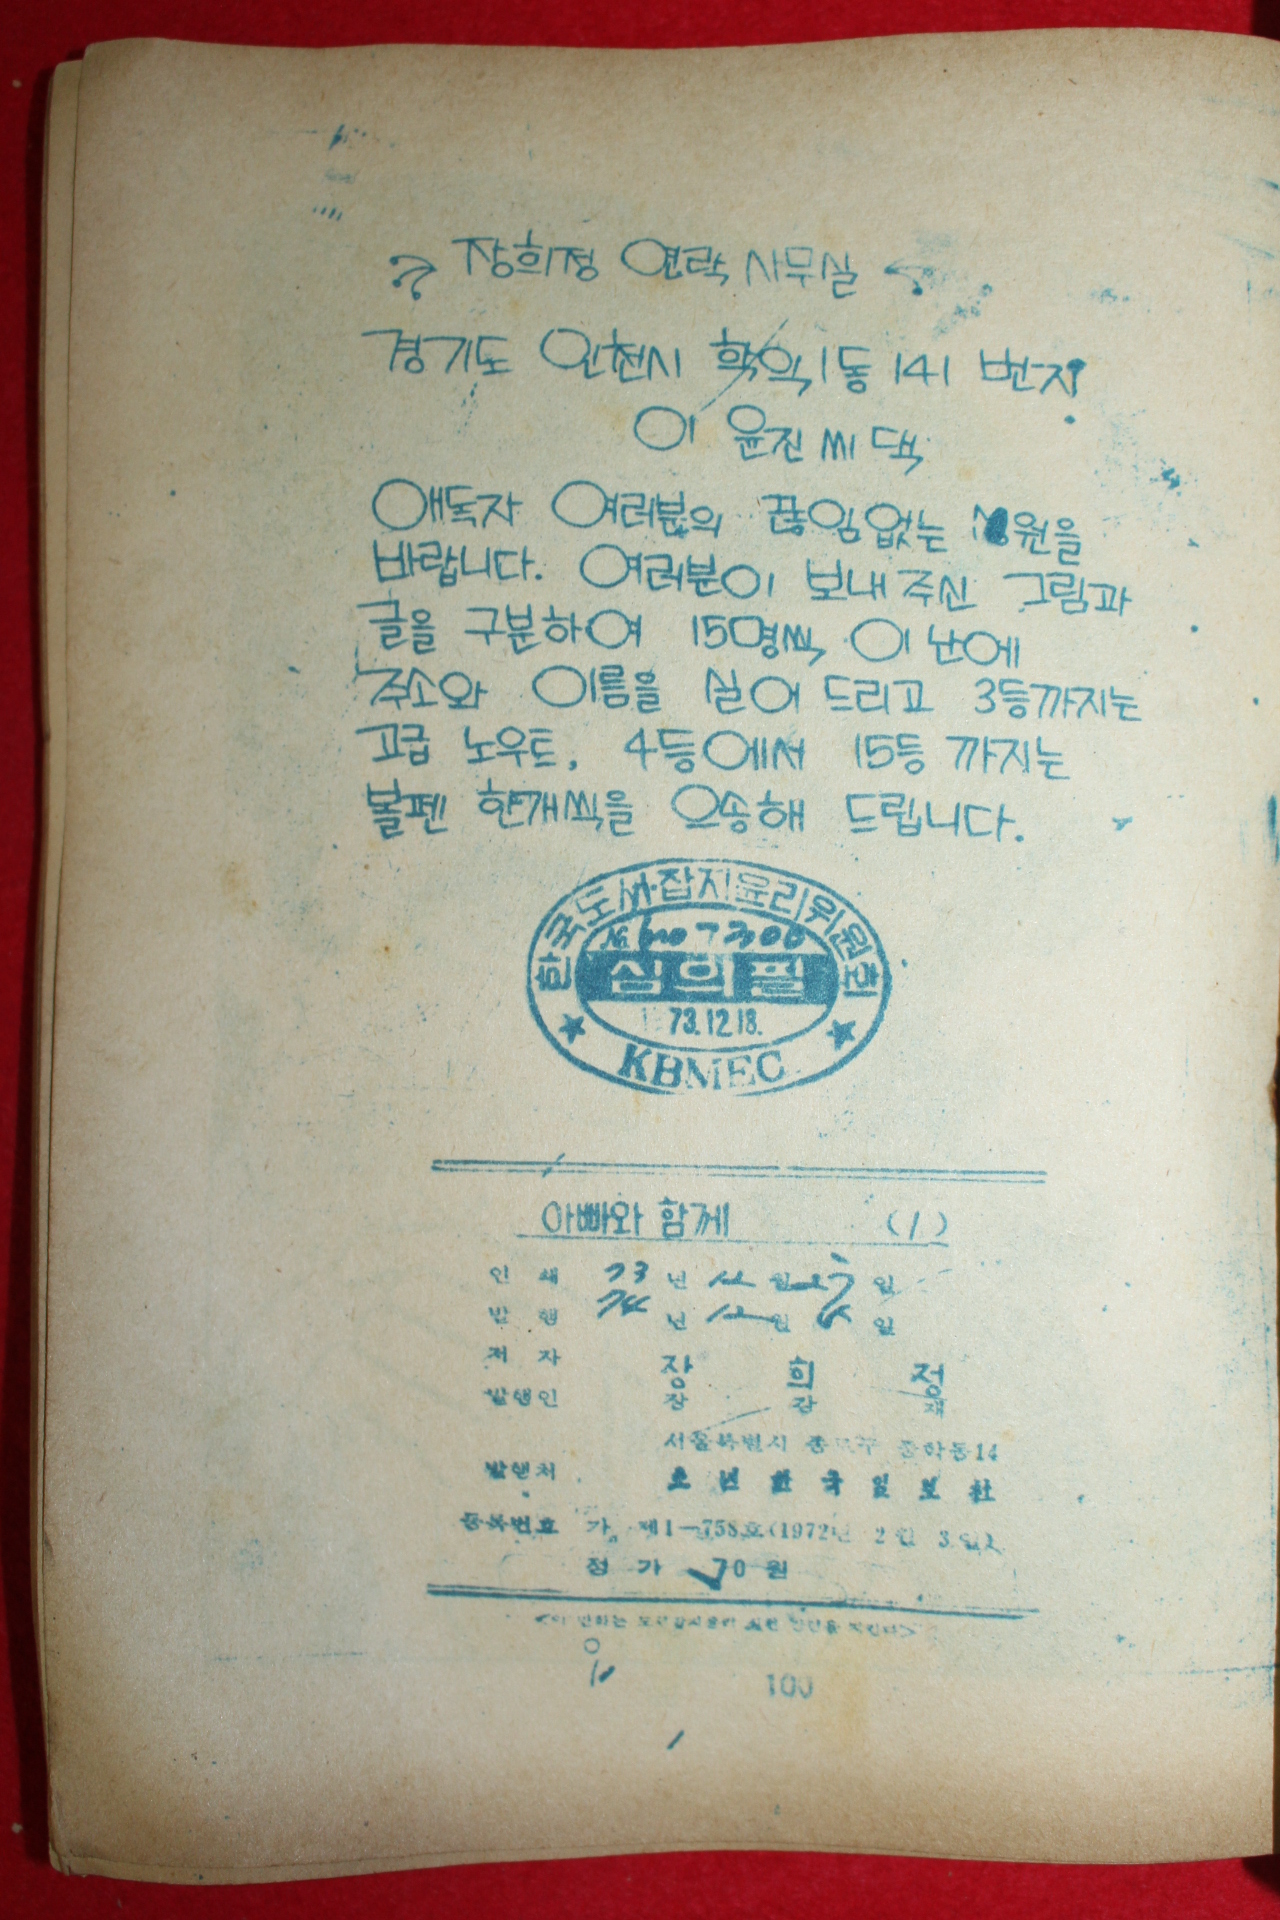 장희정 연락 사무실
경기도 인천시 학익1동 141 번지
이 윤진 씨 댁
애독자 여러분의 끊임없는 원을
바랍니다. 여러분이 보내 주신 그림과
글을 구분하여 15명씩 이 난에
주소와 이름을 실어 드리고 3등까지는
고급 노우트, 4등에서 15등 까지는
볼펜 한개씩을 으송해 드립니다.
한국도서·잡지윤리위원회
심의필
73.12.18.
KBMEC
아빠와 함께 (1)
인 쇄 73 년 월 일
발 행 74 년 월 일
저 자 장 희 정
발행인 장 강 재
서울특별시 종로구 중학동14
발행처 소년한국일보社
등록번호 가 제1—758호(1972년 2월 3일)
정 가 70 원
100